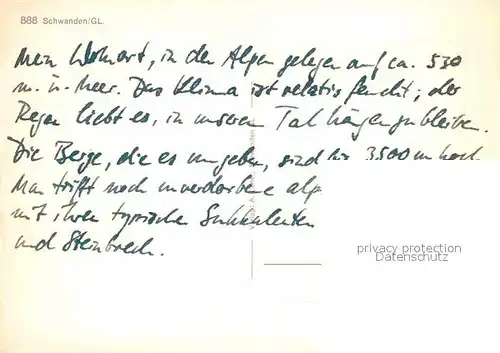 888 Schwanden/GL.
Mein Wohnort, in den Alpen gelegen auf ca. 530
m. ü. Meer. Das Klima ist relativ feucht; der
Regen liebt es, in unserem Tal hängenzubleiben.
Die Berge, die es umgeben, sind bis 3500 m hoch
Man trifft noch unverdorbene alp
mit ihren typischen Sukkulenten
und Steinbrech.
privacy protection
Datenschutz